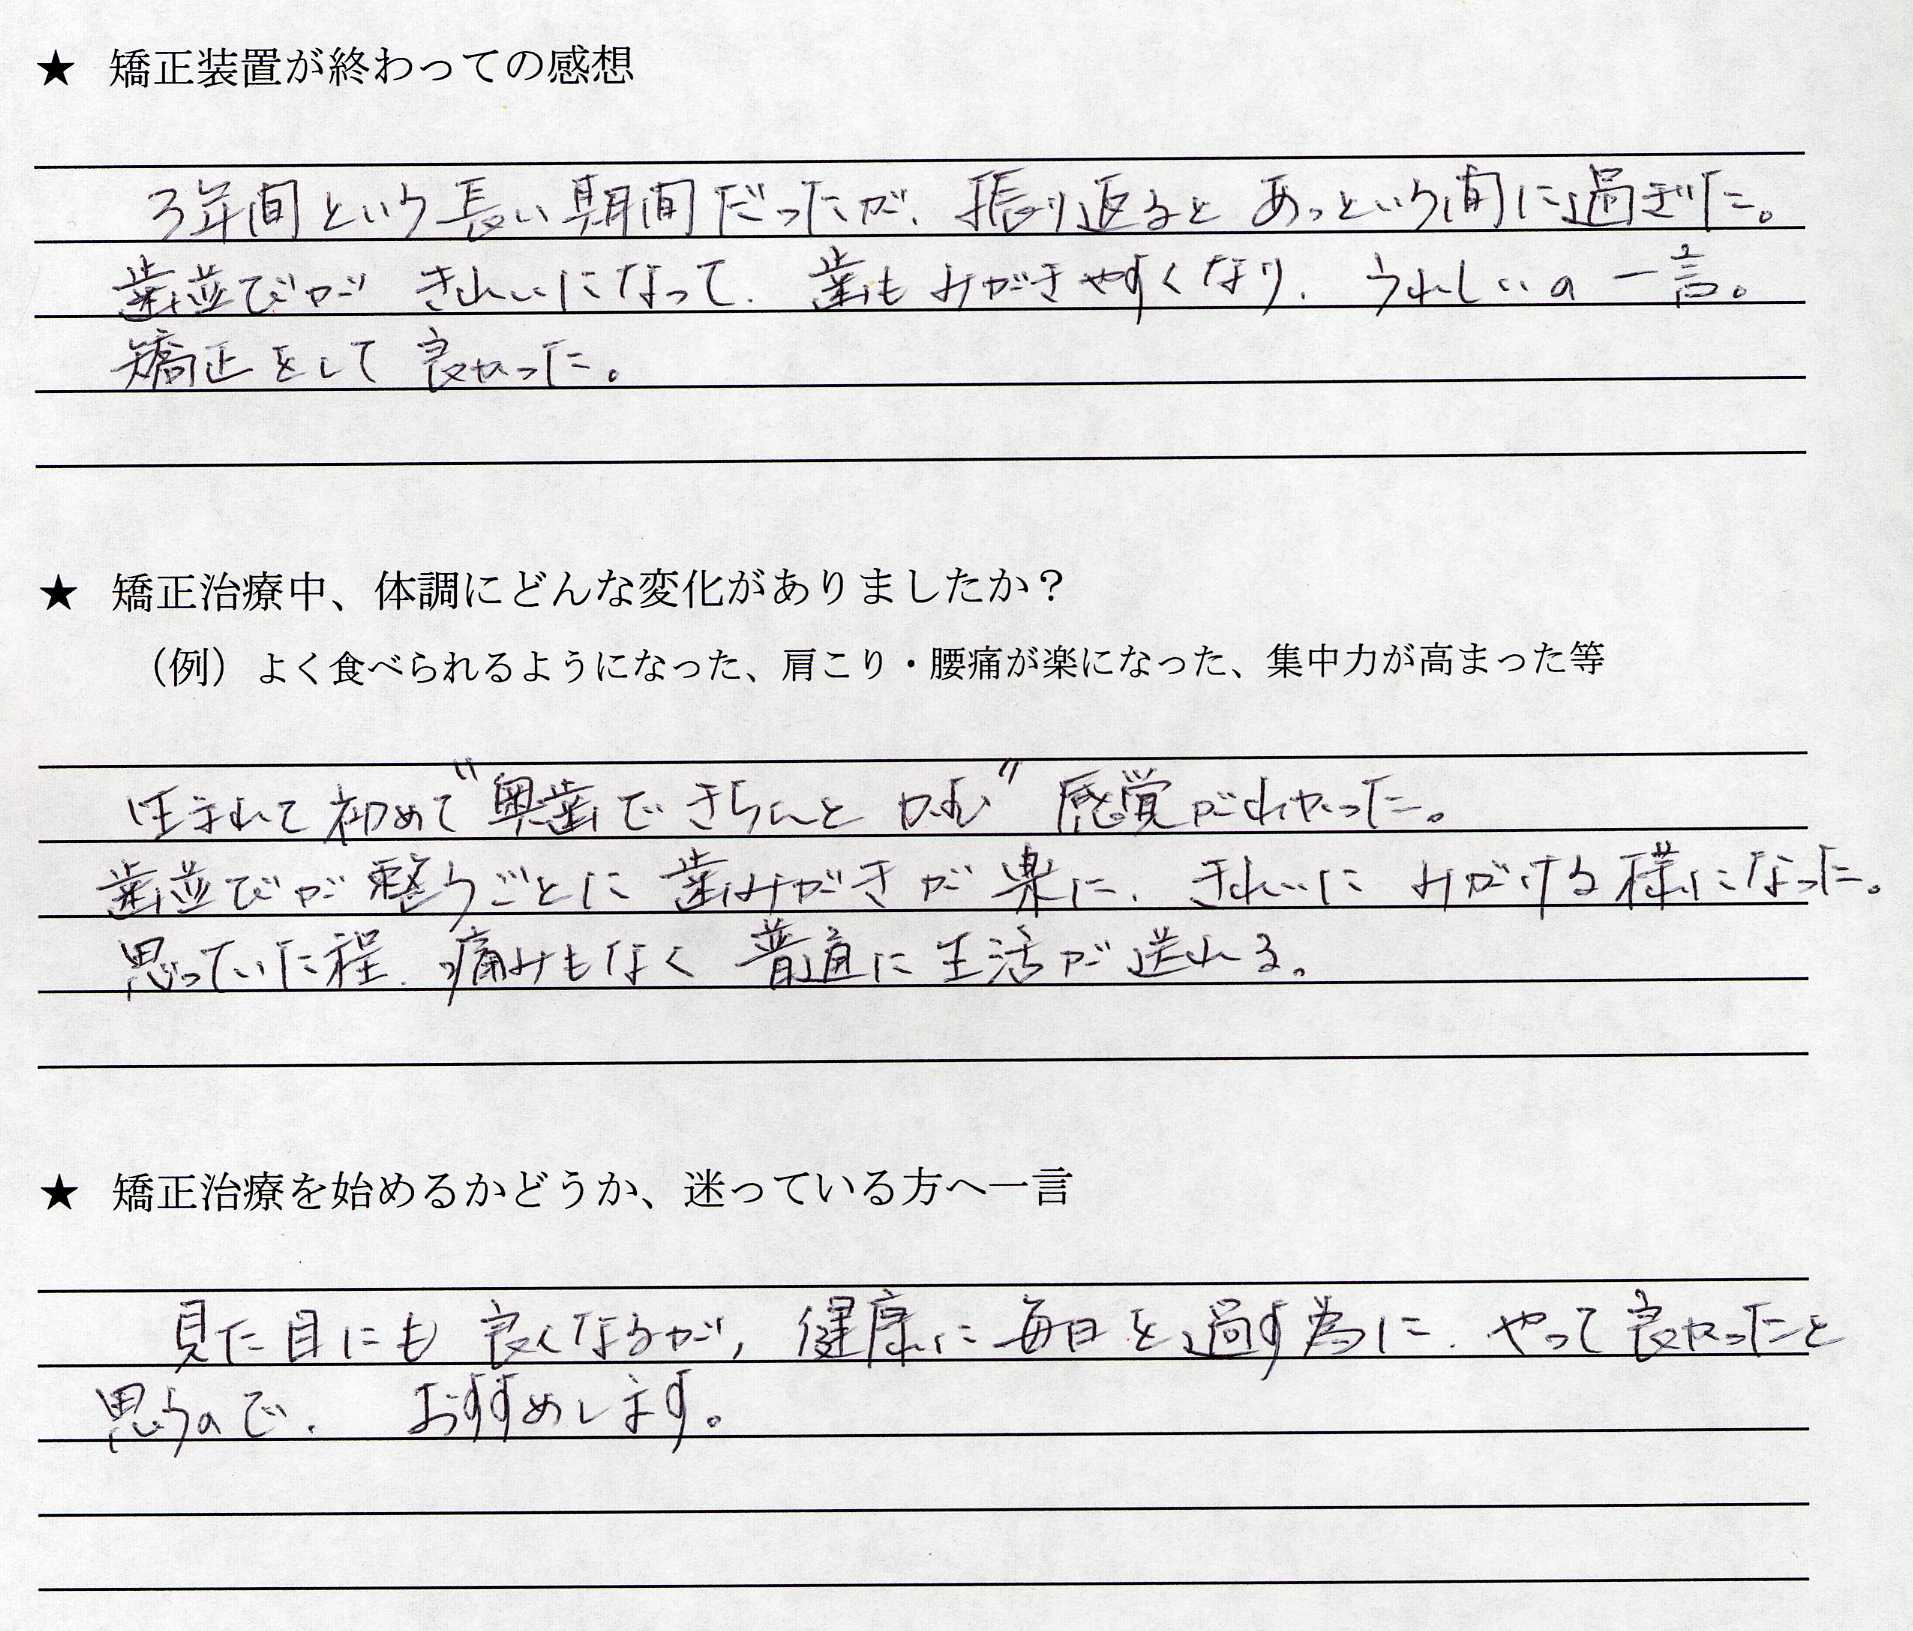 ★ 矯正装置が終わっての感想
3年間という長い期間だったが、振り返るとあっという間に過ぎた。
歯並びがきれいになって、歯もみがきやすくなり、うれしいの一言。
矯正をして良かった。
★ 矯正治療中、体調にどんな変化がありましたか？
（例）よく食べられるようになった、肩こり・腰痛が楽になった、集中力が高まった等
生まれて初めて"奥歯できちんとかむ"感覚がわかった。
歯並びが整うごとに歯みがきが楽に、きれいにみがける様になった。
思っていた程、痛みもなく普通に生活が送れる。
★ 矯正治療を始めるかどうか、迷っている方へ一言
見た目にも良くなるが、健康に毎日を過す為に、やって良かったと
思うので、おすすめします。